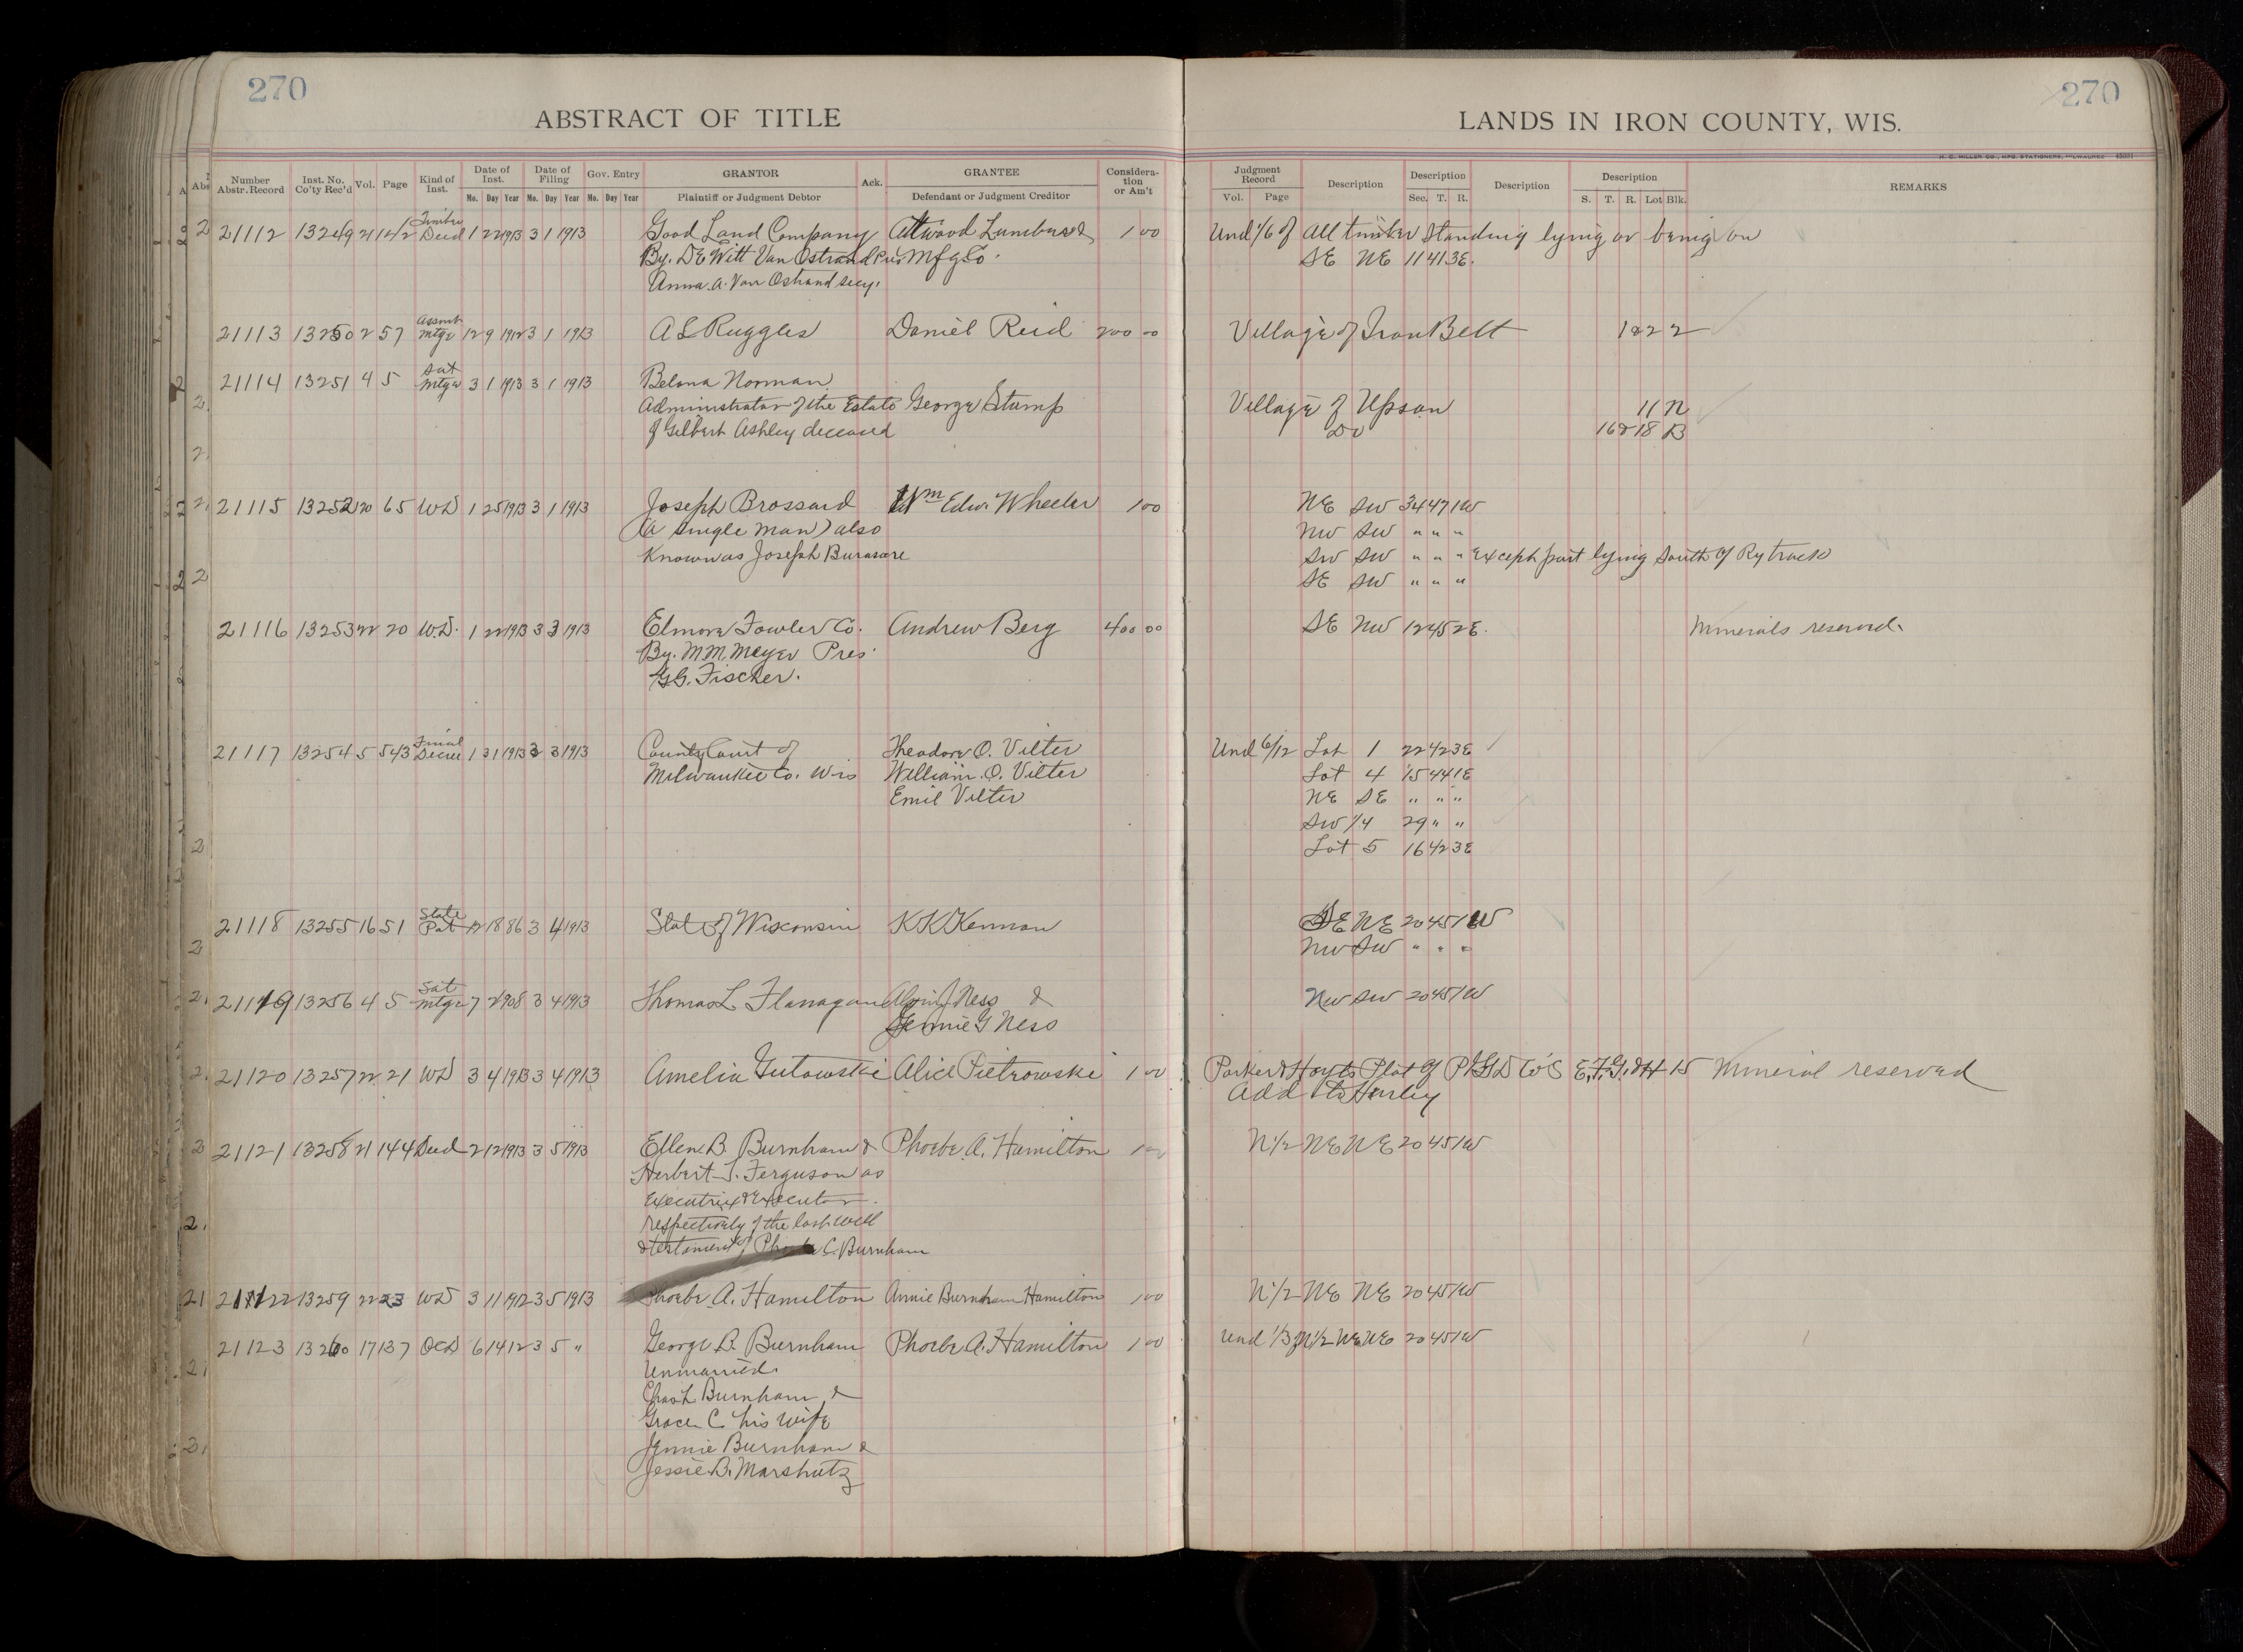 270
270
ABSTRACT OF TITLE
LANDS IN IRON COUNTY, WIS.
H. C. MILLER CO., MFG. STATIONERS, MILWAUKEE
Number Abstr. Record
Inst. No. Co'ty Rec'd
Vol.
Page
Kind of Inst.
Date of Inst.
Date of Filing
Gov. Entry
GRANTOR
Ack.
GRANTEE
Considera-tion or Am't
Judgment Record
Description
Description
Description
Description
REMARKS
Mo. Day Year Mo. Day Year Mo. Day Year
Plaintiff or Judgment Debtor
Defendant or Judgment Creditor
Vol. Page
Sec. T. R.
S. T. R. Lot Blk.
21112 13249 21 142 Timber Deed 1 22 1913 3 1 1913 Good Land Company Attwood Lumber & 1 00 Und 1/6 of all timber standing lying or being on
By. DE Witt Van Ostrand Pres Mfg Co. SE NE 11 41 3E.
Anna. A. Van Ostrand secy.
21113 13250 2 57 Assmt Mtge 12 9 1912 3 1 1913 A L Ruggles Daniel Reid 200 00 Village of Iron Belt 1&2 2
21114 13251 4 5 Sat Mtge 3 1 1913 3 1 1913 Belona Norman
Administrator of the Estate George Stump Village of Upson 11 N
of Gilbert Ashley deceased Do 16&18 B
21115 13252 20 65 WD 1 25 1913 3 1 1913 Joseph Brossard Wm Edw. Wheeler 1 00 NE SW 34 47 1W
(a single man) also NW SW " " "
Known as Joseph Burasare SW SW " " " Except part lying South of Ry track
SE SW " " "
21116 13253 22 20 W.D. 1 22 1913 3 3 1913 Elmore Fowler Co. Andrew Berg 400 00 SE NW 12 45 2E. Minerals reserved.
By. M M Meyer Pres.
G G. Fischer.
21117 13254 5 543 Final Decree 1 31 1913 3 3 1913 County Court of Theodore O. Vilter Und 6/12 Lot 1 22 42 3E
Milwaukee Co. Wis William. O. Vilter Lot 4 15 44 1E
Emil Vilter NE SE " " "
SW 1/4 29 " "
Lot 5 16 42 3E
21118 13255 16 51 State Pat 12 18 86 3 4 1913 State of Wisconsin K K Kennan SE NE 20 45 1W
NW SW " " "
21119 13256 4 5 Sat Mtge 7 2 1908 3 4 1913 Thomas L. Flanagan Alvin J Ness & NW SW 20 45 1W
Jennie G Ness
21120 13257 22 21 WD 3 4 1913 3 4 1913 Amelia Gutowski Alice Pietrowski 1 00 Parker & Hoyts Plat of Co's E, F, G, & H 15 Mineral reserved
Add to Hurley
21121 13258 21 144 Deed 2 12 1913 3 5 1913 Ellen. B. Burnham & Phoebe. A. Hamilton 1 00 N 1/2 NE NE 20 45 1W
Herbert S. Ferguson as
Executrix & Executor
respectively of the last will
& testament of Phoebe C. Burnham
21122 13259 22 23 WD 3 11 1912 3 5 1913 Phoebe. A. Hamilton Annie Burnham Hamilton 1 00 N 1/2 NE NE 20 45 1W
21123 13260 17 137 QCD 6 14 12 3 5 " George B. Burnham Phoebe A. Hamilton 1 00 Und 1/3 of N 1/2 NE NE 20 45 1W
Unmarried.
Chas L Burnham &
Grace C. his wife
Jennie Burnham &
Jessie B. Marshutz